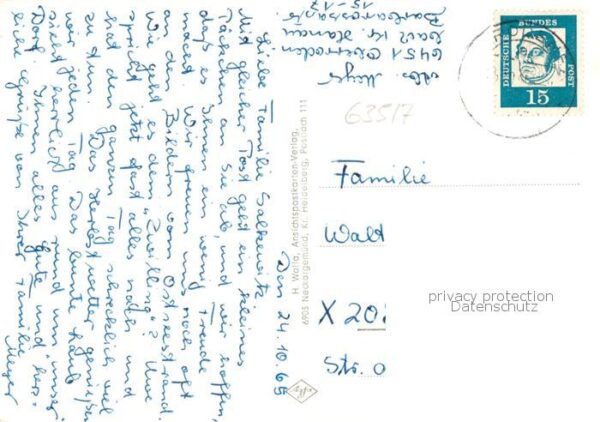 Abs. Meyer
6451 Oberroden
Barbarossastr.
15-17
Den 24.10.65
Liebe Familie
Mit gleicher Post geht ein kleines
Täschchen an Sie ab, und wir hoffen,
daß es Ihnen ein wenig Freude
macht. Wir freuen uns noch oft
an den Bildern vom Ostseestrand.
Wie geht es dem "Zwilling"? Uwe
spricht jetzt fast alles nach und
hat den ganzen Tag schrecklich viel
zu tun. Das Herbstwetter genießen
wir jeden Tag. Das bunte Laub
sieht herrlich aus rund um unser
Dorf. Ihnen alles Gute und herz-
liche Grüße von Ihrer Familie
Meyer
H. Wolfa, Ansichtspostkarten-Verlag,
6903 Neckargemünd, Kr. Heidelberg, Postfach 111
63517
DEUTSCHE BUNDESPOST
15
Familie
Walt
X 20
Str. d
privacy protection
Datenschutz